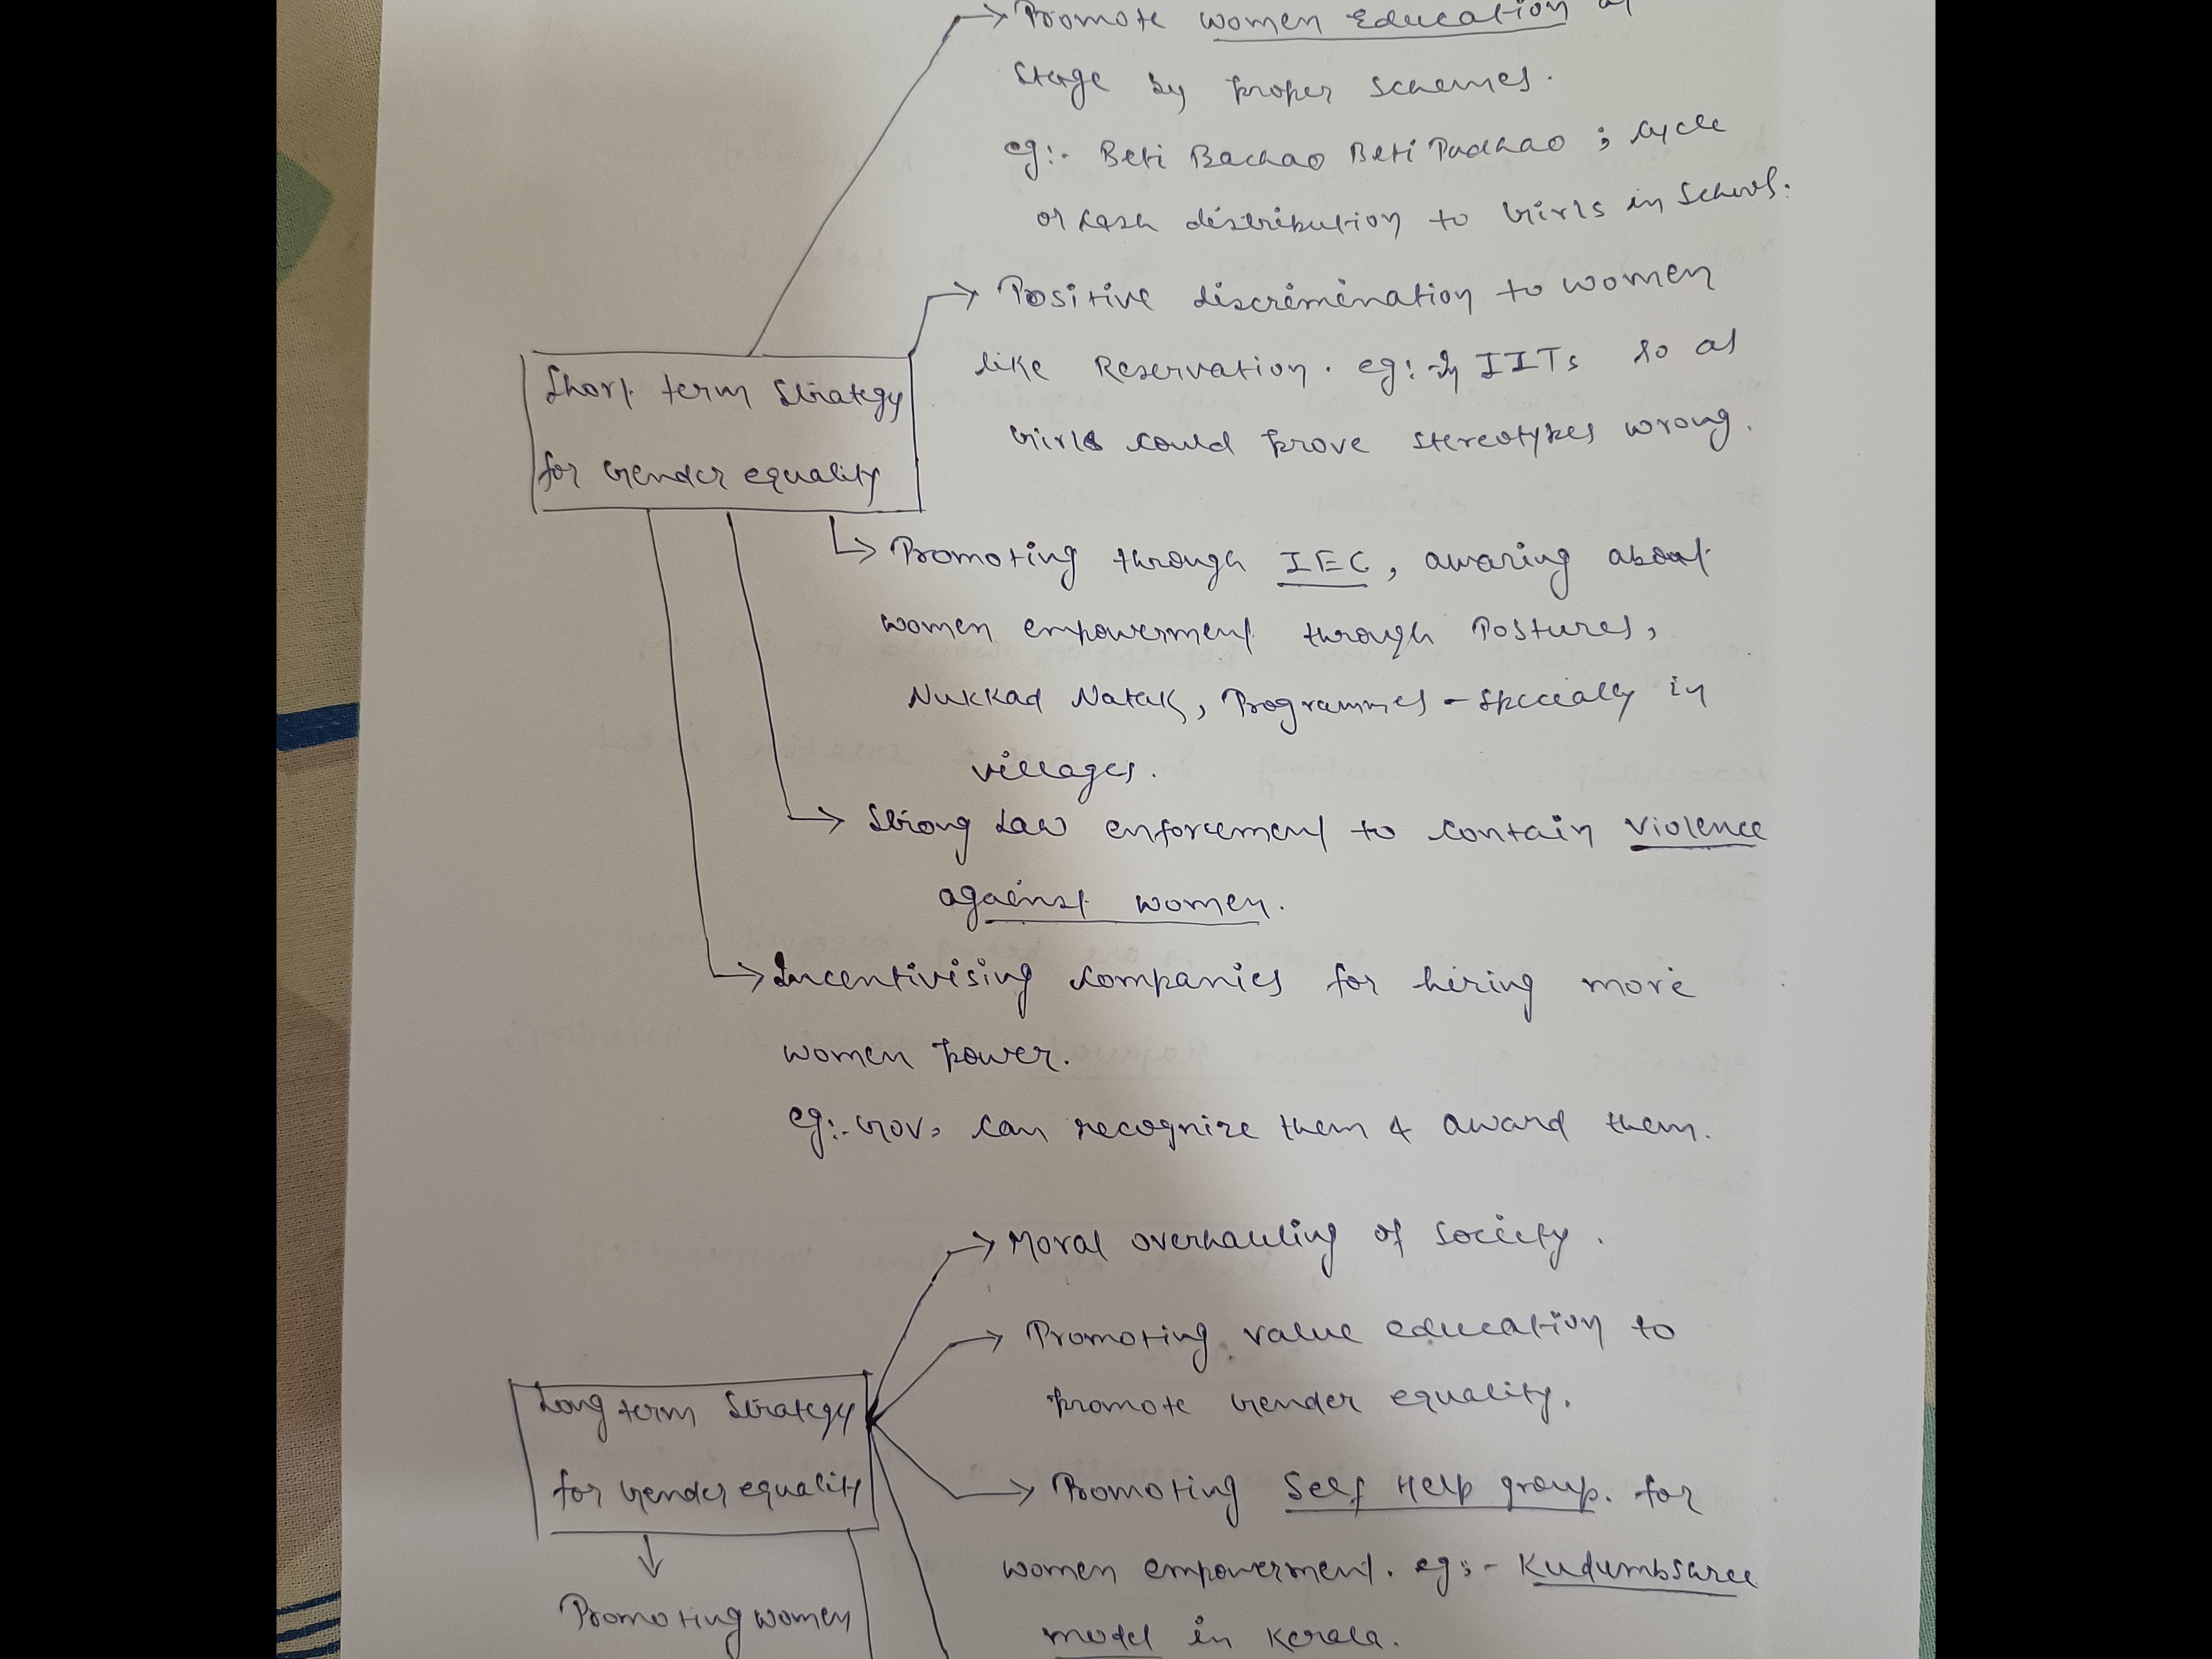 Promote women Education at
stage by proper schemes.
eg:- Beti Bachao Beti Padhao ; cycle
or cash distribution to Girls in School.
Positive discrimination to women
like Reservation. eg:- In IITs so as
Girls could prove stereotypes wrong.
Short term Strategy
for Gender equality
Promoting through IEC, awaring about
women empowerment through Postures,
Nukkad Natak, Programmes - specially in
villages.
Strong Law enforcement to contain violence
against women.
Incentivising companies for hiring more
women power.
eg:- Gov. can recognize them & award them.
Moral overhauling of society.
Promoting value education to
promote Gender equality.
Long term Strategy
for Gender equality
Promoting Self Help group. for
women empowerment. eg:- Kudumbshree
model in Kerala.
Promoting women